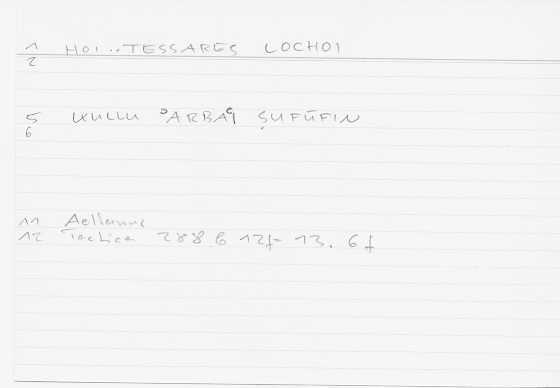 1 HOI .. TESSARES LOCHOI
2
5 KULLU ʾARBAʿI ṢUFŪFIN
6
11 Aelianus
12 Tactica 288 6 12f- 13. 6 f